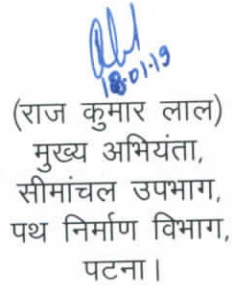 18.01.19
(राज कुमार लाल)
मुख्य अभियंता,
सीमांचल उपभाग,
पथ निर्माण विभाग,
पटना।